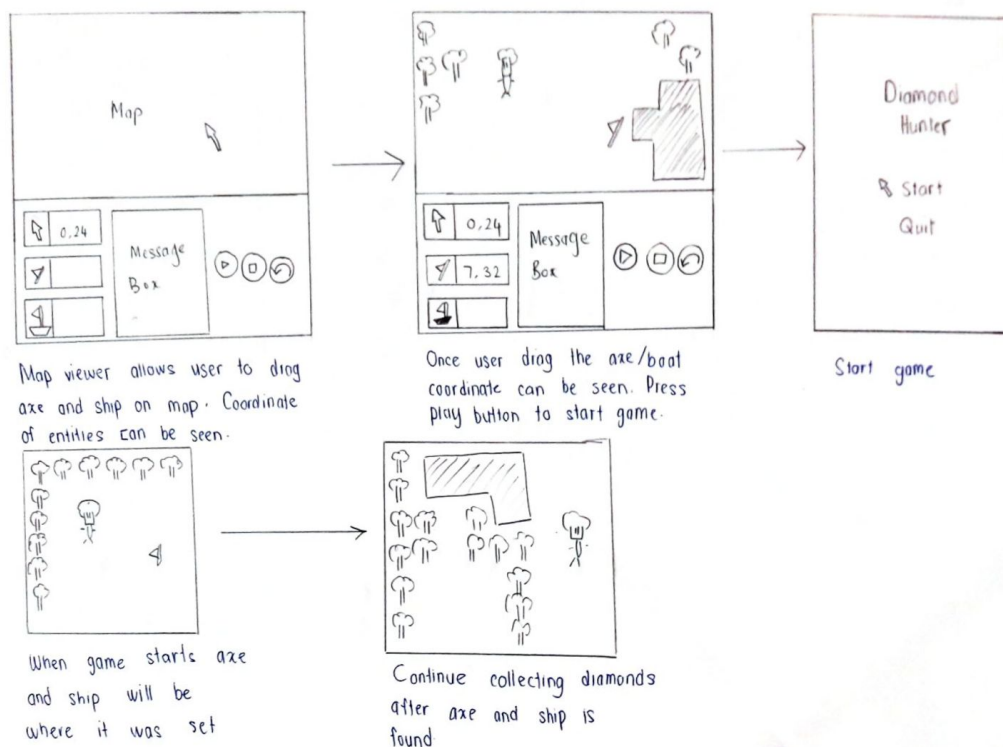 Map
0,24
Message
Box
Map viewer allows user to drag
axe and ship on map. Coordinate
of entities can be seen.
0,24
7,32
Message
Box
Once user drag the axe/boat
coordinate can be seen. Press
play button to start game.
Diamond
Hunter
Start
Quit
Start game
When game starts axe
and ship will be
where it was set
Continue collecting diamonds
after axe and ship is
found